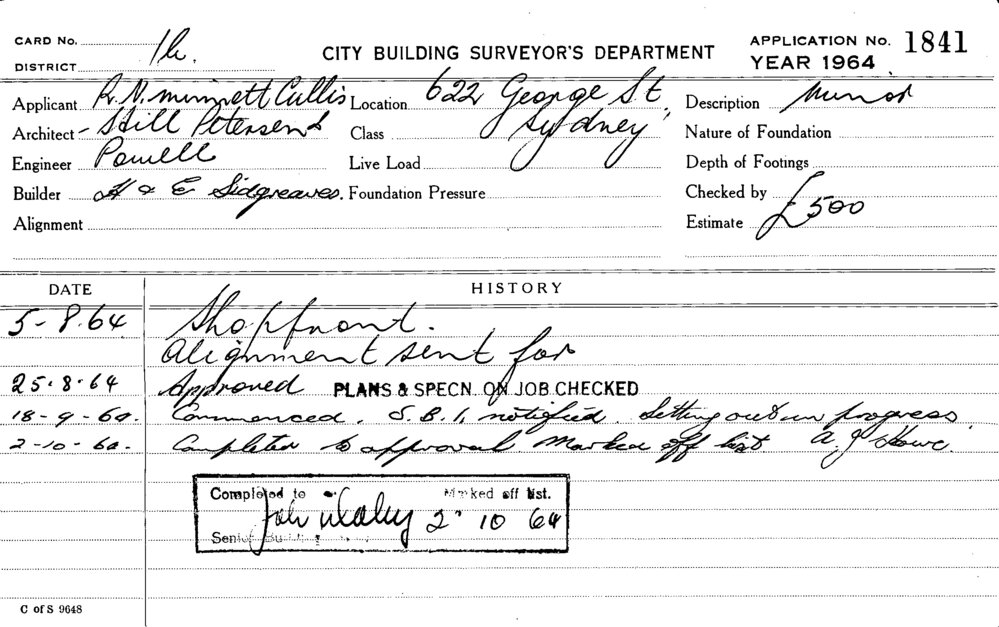 CARD No. 1b. CITY BUILDING SURVEYOR'S DEPARTMENT APPLICATION No. 1841
DISTRICT YEAR 1964
Applicant R. N. minnett Cullis Location 622 George St, Description Minor
Architect - Still Petersen & Class Sydney Nature of Foundation
Engineer Powell Live Load Depth of Footings
Builder H & E Sidgreaves. Foundation Pressure Checked by
Alignment Estimate £500
DATE HISTORY
5-8.64 Shopfront.
Alignment sent for
25.8.64 Approved PLANS & SPECN. ON JOB CHECKED
18-9-64. Commenced. S.B.I. notified. Setting out in progress
2-10-64. Completed to approval. Marked off list A. J. Howe.
Completed to Marked off list.
2 10 64
Senior Building
C of S 9648